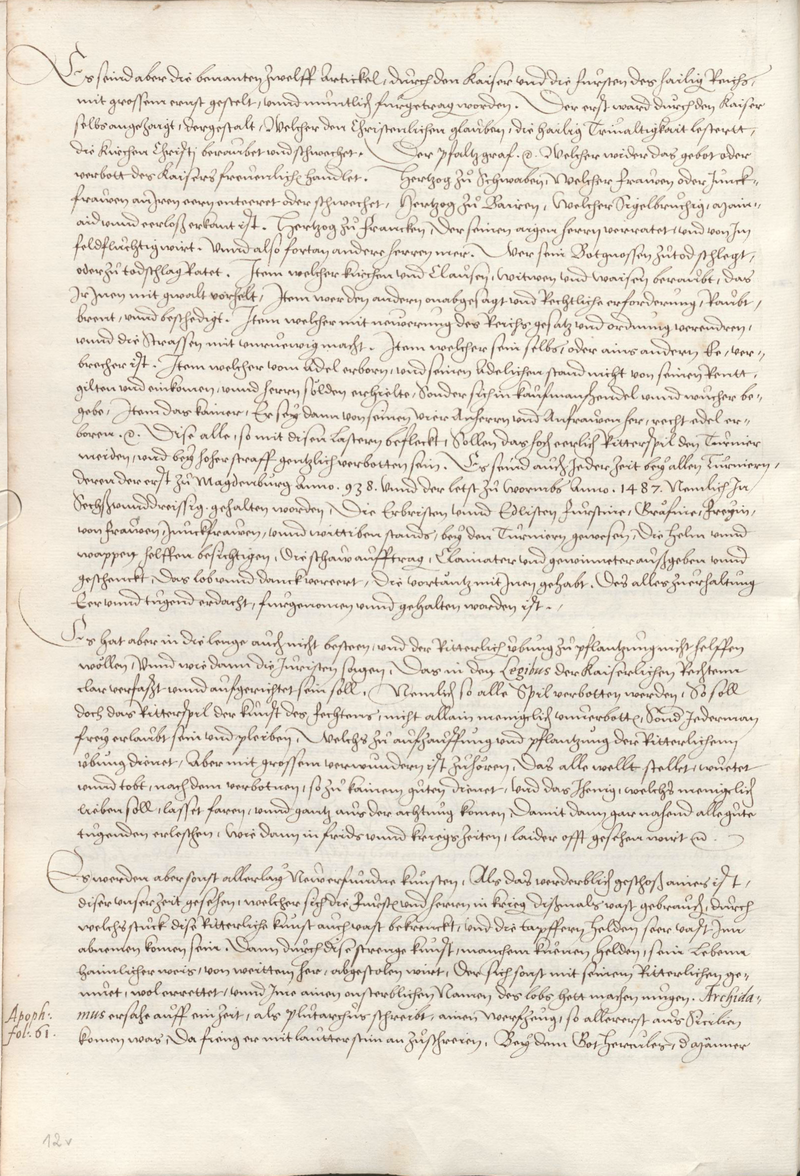 Es seind aber die benanten zwelff Artickel, durch den Kaiser vnd die fursten des hailig Reichs,
mit grossem ernst gestelt, vnnd muntlich furgetrag worden. Der erst ward durch den Kaiser
selbs angezaigt, dergestalt, Welcher den Christenlichen glauben, die hailig Triualtigkait lestertt,
die kirchen Christj beraubet vnd schwechet. Der Pfaltzgraf. Welcher wider das gebot oder
verbott des Kaisers freuenlich handlet. Hertzog zů Schwaben, Welcher frawen oder Junck-
frawen an Jren eern enteeret oder schwechet, Hertzog zů Bairen, Welcher Sigelbruchig, main-
aid vnnd eerloß erkant ist. Hertzog zů Francken, Der seinen aigen herrn verratet, vnd von Jm
feldfluchtig wirt. Vnnd also fortan andere herren mer. Wer sein Botgnossen zů tod schlegt,
oder zů todschlag Ratet. Item welcher kirchen vnd Clausen, witwen vnd waisen beraubt, das
Jr Jnen mit gwalt vorhelt, Item wer den andern onabgesagt vnd Rechtliche erforderung, Raubt,
brent, vnnd beschedigt. Item welcher mit newerung des Reichs gesatz vnd ordnung verendren,
vnnd die Strassen mit vnruewig macht. Item welcher sein selbs, oder ains andern Ee, ver-
brecher ist. Item welcher vom Adel erborn, vnd seinen Adelichen stand nicht von seinen Rentt,
gilten vnd einkomen, vnnd herrn sölden erhielte, Sonder sich in kaufmanshendel vnnd wucher be-
gebe, Item das kainer, Er sey dann von seinen vier Anherrn vnd Anfrawen her, recht edel er-
boren. Dise alle, so mit disen lastern befleckt, Sollen das hoch eerlich Ritterspil den Turnier
meiden, vnd bey hoher straff gentzlich verbotten sein. Es seind auch Jeder zeit bey allen Turniern,
deren der erst zů Magdenburg Anno. 938. vnnd der letst zů wormbs Anno. 1487. Nemlich Jn
Sechßvnnddreissig. gehalten worden, Die Erbristen vnnd Edlisten furstine, Gräfine, Freyin,
von frawen, Junckfrawen, vnnd wittiben stands, bey den Turniern gewesen, Die helm vnnd
wappen helffen besichtigen, Die schaw aufftrag, Clainater vnd gewinneter außgeben vnnd
geschenckt, Das lob vnnd danck vereert, Die vortäntz mit Jnen gehabt. Des alles zuerhaltung
Eer vnnd tugend erdacht, furgenomen vnnd gehalten worden ist.
Es hat aber in die lenge auch nicht besteen, vnd der Ritterlich vbung zů pflantzung nicht helffen
wöllen, Vnnd wie dann die Juristen sagen, Das in den Legibus der Kaiserlichen Rechtenn
clar verfaßt vnnd aufgerichtet sein söll, Nemlich so alle Spil verbotten werden, So soll
doch das Ritterspil der kunst des fechtens, nicht allain meniglich vnuerbotten, Sond Jederman
frey erlaubt sein vnd pleiben, Welchs zů auffhauffung vnd pflantzung der Ritterlichenn
vbung dienet, Aber mit grossem verwundern ist zuhören, Das alle wellt stellet, wuetet
vnnd tobt, nach dem verbotnen, so zů kainem gůten dienet, Vnd das Jhenig, welchs meniglich
lieben soll, lasset faren, vnnd gantz aus der achtung komen, Damit dann gar nahend alle gůte
tugenden erleschen, Wie dann in frids vnnd kriegs zeiten, laider offt gesehen wirt
Es werden aber sonst allerlay Newerfundne kunsten, Als das verderblich geschoß aines ist,
diser vnser zeit gesehen, welcher sich die Fursten vnd herren in krieg dißmals vast gebrauch, durch
welchs stuck dise Ritterliche kunst auch vast bekrenckt, vnd die tapffern helden seer vast Jnn
abnemen komen sein. Dann durch dise strenge kunst, manchem kuenen helden, sein Lebenn
haimlicher weis, von weittem her, abgestolen wirt, Der sich sonst mit seinen Ritterlichen ge-
muet, wol errettet, vnnd Jme ainen onsterblichen Namen des lobs hett machen mugen. Archida-
mus ersahe auff ein zeit, als Plutarchus schreibt, ainen werfzeug, so allererst aus Sicilien
komen was, Da fieng er mit lautter stim an zůschreien, Bey dem Got Hercules, d Männer
Apoph:
fol: 61.
12v